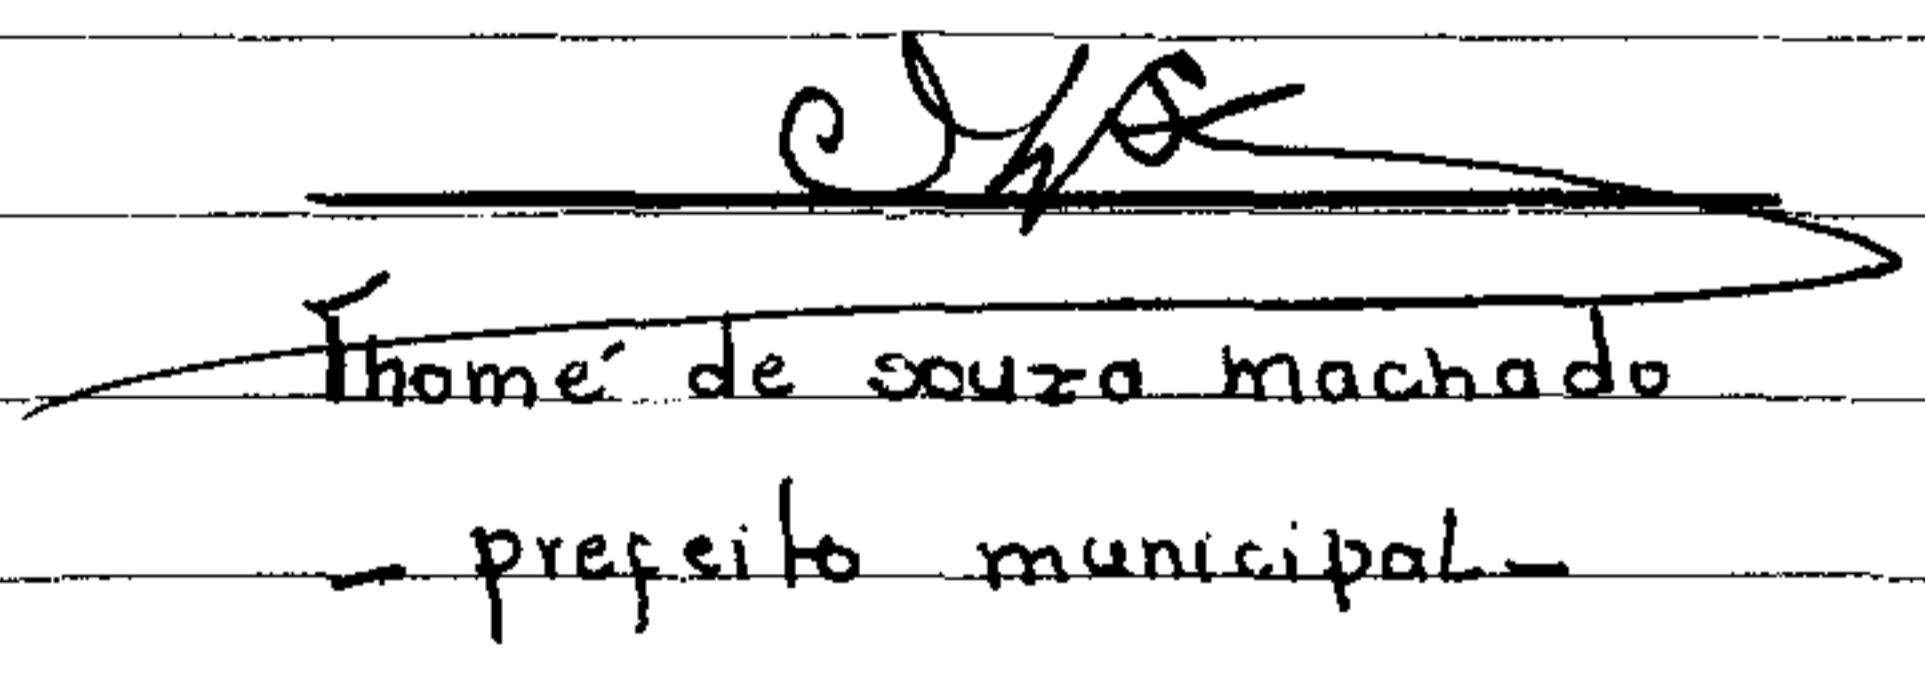 Thomé de souza machado
- prefeito municipal -